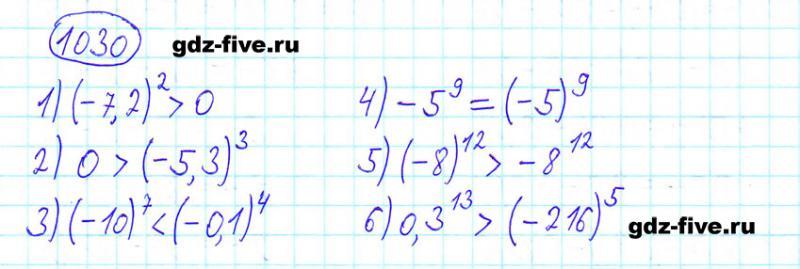 1030 gdz-five.ru
1) (-7,2)² > 0
2) 0 > (-5,3)³
3) (-10)⁷ < (-0,1)⁴
4) -5⁹ = (-5)⁹
5) (-8)¹² > -8¹²
6) 0,3¹³ > (-216)⁵
gdz-five.ru